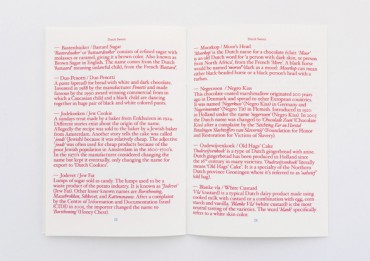 Dutch Sweets
— Basterdsuiker / Bastard Sugar
'Basterdsuiker' or 'bastardsuiker' consists of refined sugar with
molasses or caramel, giving it a brown color. Also known as
Brown Sugar in English. The name comes from the Dutch
'Bastaard' meaning unlawful child, from the French 'Bastard'.
— Duo Penotti / Duo Penotti
A paste (spread) for bread with white and dark chocolate,
invented in 1988 by the manufacturer Penotti and made
famous by the 1990 award winning commercial from in
which a Caucasian child and a black child are dancing
together in huge pair of black and white colored pants.
— Jodekoeken / Jew Cookie
A cookie treat by a baker's firm from Enkhuizen in 1924.
Different stories exist about the origin of the name.
Allegedly the recipe was sold to the baker by a Jewish baker
from Amsterdam. Another story tells the cake was called
'Jewish' because it was relatively cheap. The adjective
'jood' was often used for cheap products because of the
poor Jewish population in Amsterdam in the
In the 1970's the manufacturer considered changing the
name but kept it eventually, only changing the name for
export to 'Dutch Cookies'.
— Jodevet / Jew Fat
Lumps of sugar sold as candy. The lumps used to be a
waste product of the potato industry. It is known as 'Jodevet'
(Jew Fat). Other lesser known names are Borsthoning,
and Kattenstaart. After a complaint
by the Centre of Information and Documentation Israel
(CIDI) in 2003, the importer changed the name to
Borsthoning (Honey Chest).
Dutch Sweets
— Moorkop / Moor's Head
'Moorkop' is the Dutch name for a chocolate eclair. 'Moor'
is an old Dutch word for 'a person with dark skin, or person
from North Africa', from the French 'More'. A black horse
could be named 'moreel' (dark as a moor). Moorkop can mean
either black-headed horse or a black person's head with a
turban.
— Negerzoen / Negro Kiss
This chocolate coated marshmallow originated 200 years
ago in Denmark and spread to other European countries.
It was named 'Negerkus' (Negro Kiss) in Germany and
'Negerinnentetten' (Negress Tit) in Flemish. Introduced in 1920
in Holland under the name 'negerzoen' (Negro Kiss). In 2005
the Dutch name was changed to 'Chocolade Zoen' (Chocolate
Kiss) after a complaint by the 'Stichting Eer en Herstel
Betalingen Slachtoffers van Slavernij' (Foundation for Honor
and Restoration for Victims of Slavery).
— Oudewijvenkoek / Old Hags' Cake
'Oudewijvenkoek' is a type of Dutch gingerbread with anise.
Dutch gingerbread has been produced in Holland since
the century in many varieties. 'Oudewijvenkoek' literally
means 'Old Hags' Cake'. It is a specialty of the Northern
Dutch province Groningen where it's referred to as
(old bag).
— Blanke vla / White Custard
'Vla' (custard) is a typical Dutch dairy product made using
cooked milk with custard or a combination with egg, corn
starch and vanilla. 'Blanke Vla' (white custard) is the most
neutral tasting of the varieties. The word 'blank' specifically
refers to a white skin color.